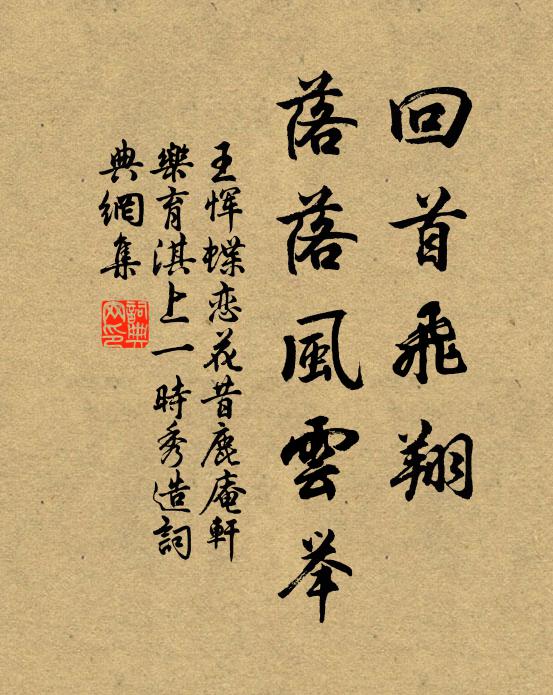 回首飛翔
落落風雲举
王恽蝶恋花昔鹿庵軒
樂育淇上一時秀造詞
典網集
詞典網印